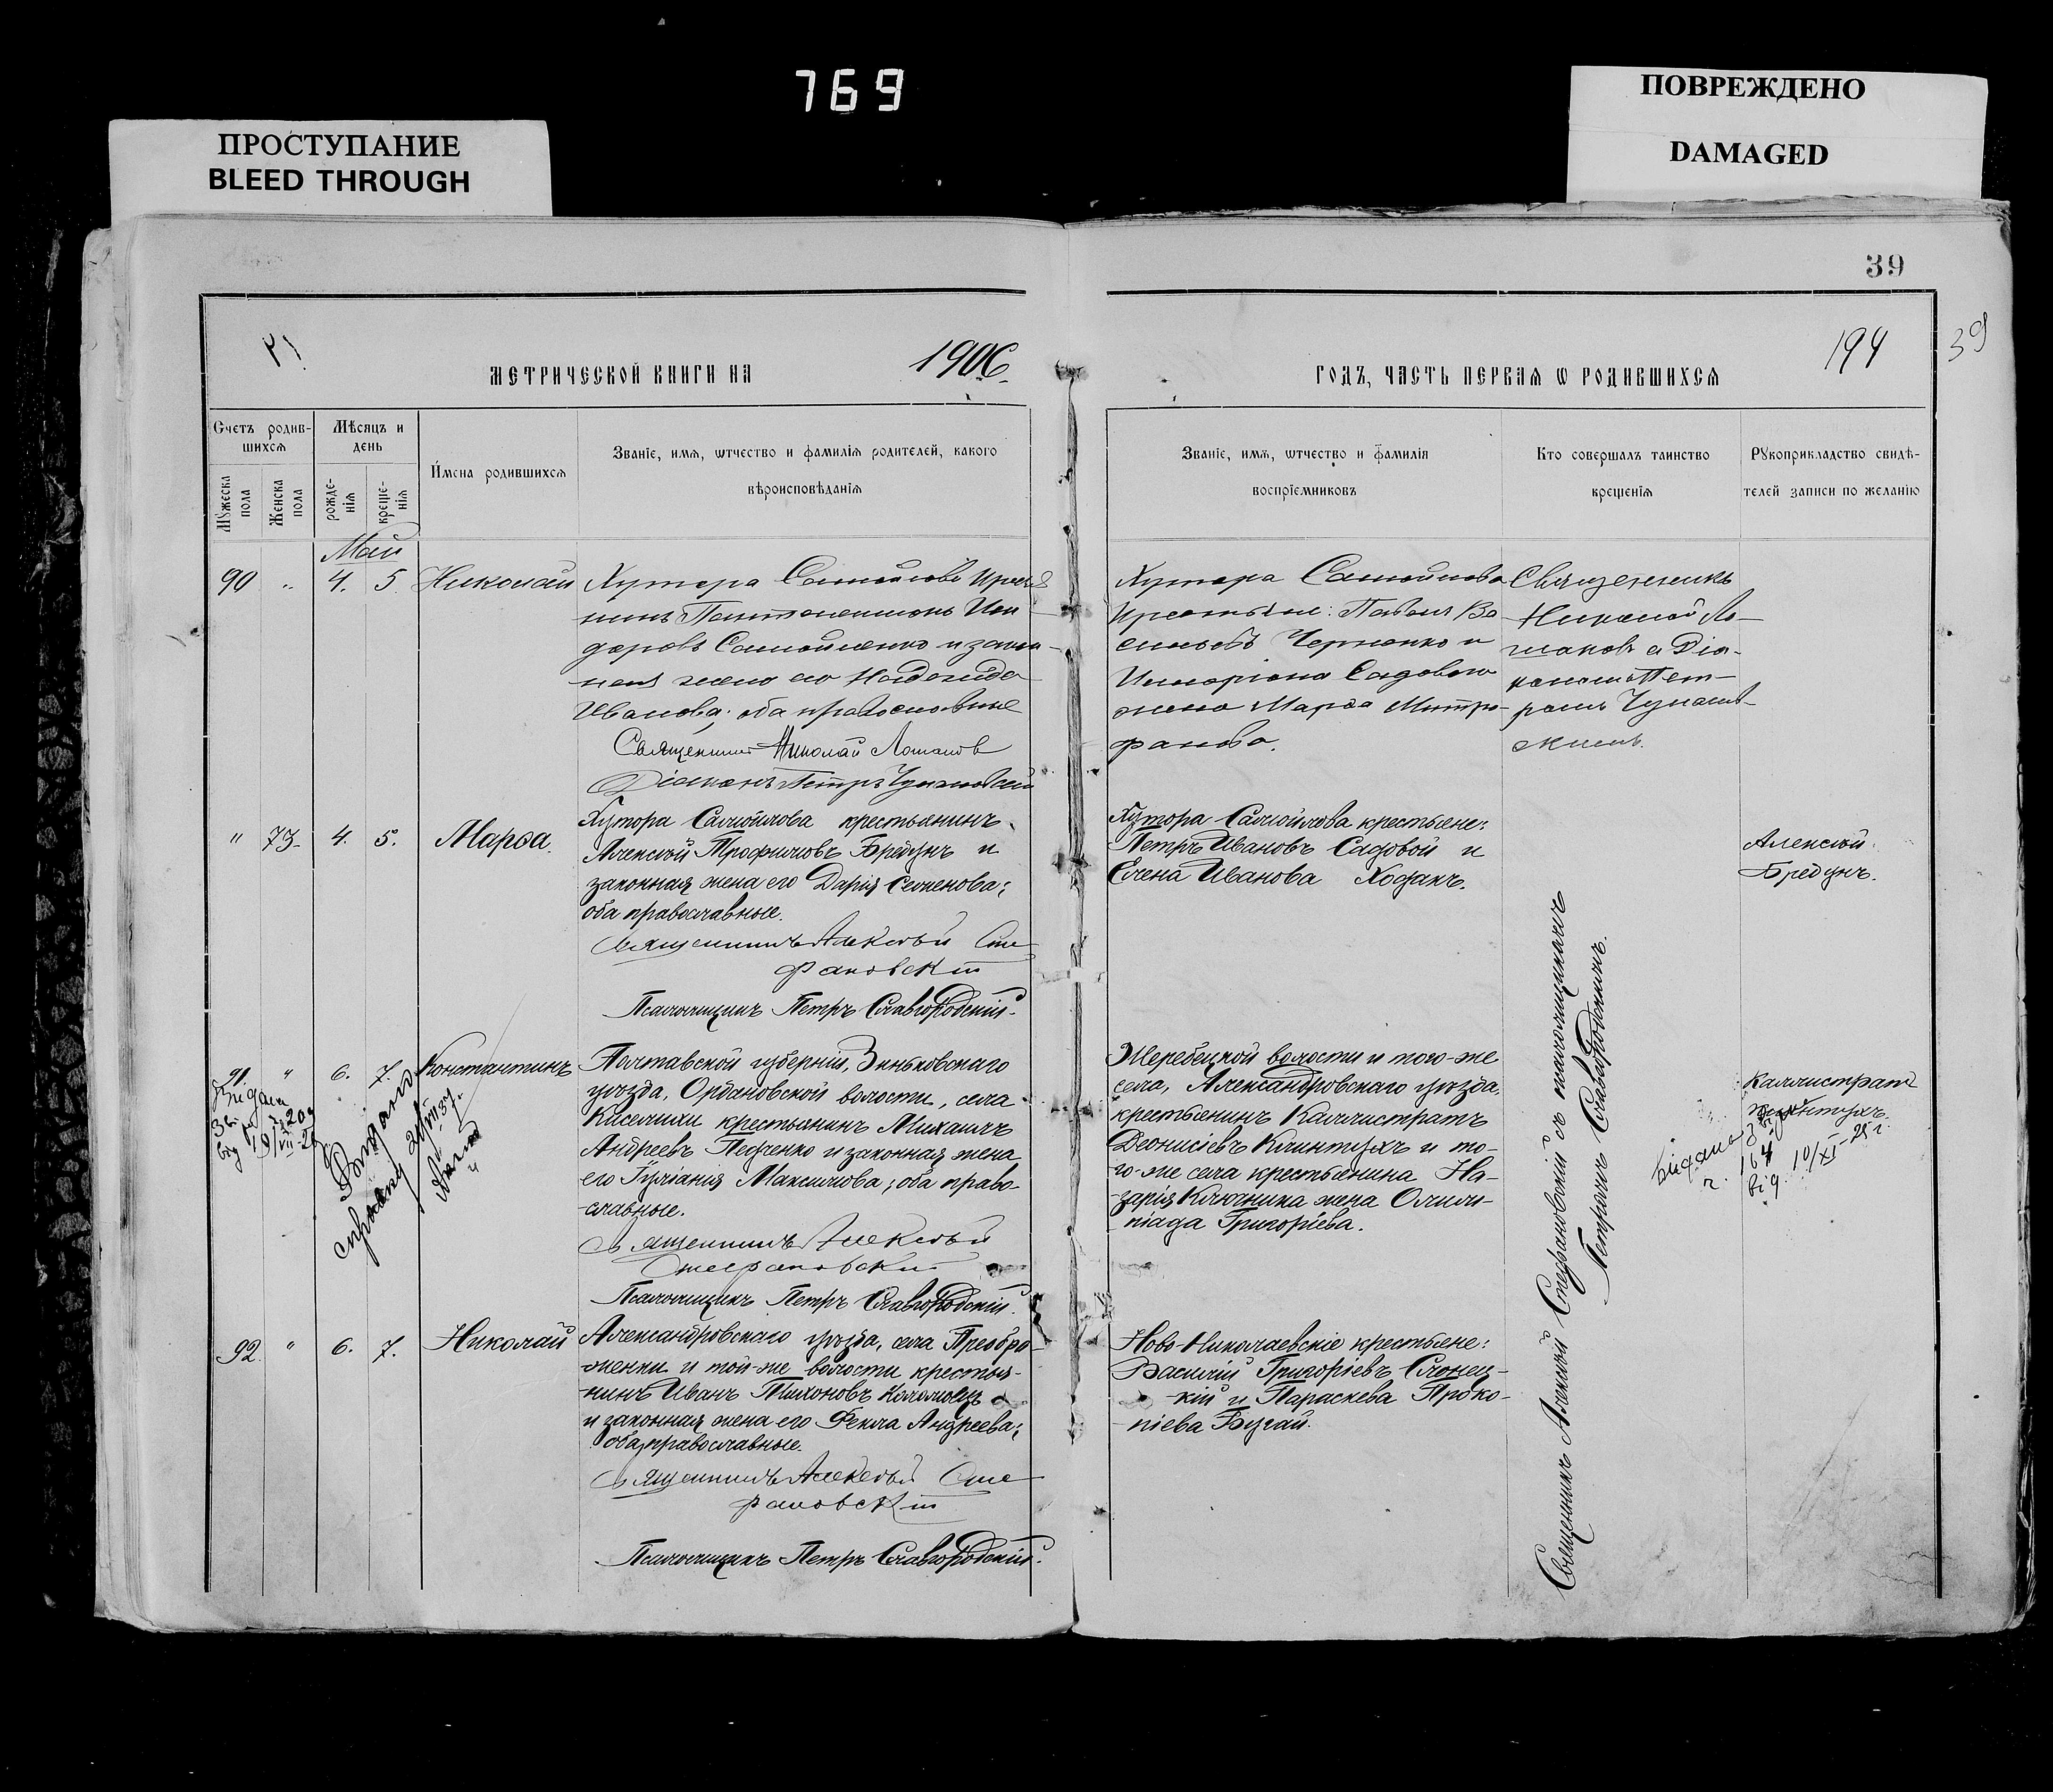 769
ПРОСТУПАНИЕ
BLEED THROUGH
ПОВРЕЖДЕНО
DAMAGED
39
39
194
МЕТРИЧЕСКОЙ КНИГИ НА 1906.
ГОДЪ, ЧАСТЬ ПЕРВАЯ Ѡ РОДИВШИХСЯ
Счетъ родив-
шихся
Мужеска пола
Женска пола
Мѣсяцъ и
день
рожде-
нія
креще-
нія
Имена родившихся
Званіе, имя, ѡтчество и фамилія родителей, какого
вѣроисповѣданія
Званіе, имя, ѡтчество и фамилія
воспрїемниковъ
Кто совершалъ таинство
крещенїя
Рукоприкладство свидѣ-
телей записи по желанію
Май
90 " 4. 5. Николай
Хутора Самойлова
нинъ Пантелеимонъ
доровъ Самойленко и закон-
ная жена его Надежда
Иванова; оба православные
Священникъ Николай Лошаков
Діаконъ Петръ
Хутора Самойлова
Крестьяне: Павелъ Ва-
сильевъ Черненко и
Илларіона Садового
жена Марфа Митро-
фанова.
Священникъ
Николай Ло-
шаковъ с Діа-
кономъ Пет-
ромъ
" 73. 4. 5. Марфа.
Хутора Самойлова крестьянинъ
Алексѣй Трофимовъ Бредунъ и
законная жена его Дарія Семенова;
оба православные.
Священникъ Алексѣй Сте-
фановскій
Псаломщикъ Петръ Славгородскій.
Хутора Самойлова крестьяне:
Петръ Ивановъ Садовой и
Елена Иванова Ходакъ.
Алексѣй
Бредунъ.
91. " 6. 7. Константинъ
Полтавской губерніи, Зиньковскаго
уѣзда, Ордановской волости, села
крестьянинъ Михаилъ
Андреевъ Педченко и законная жена
его Іуліанія Максимова; оба право-
славные.
Священникъ Алексѣй
Стефановскій
Псаломщикъ Петръ Славгородскій.
Жеребецкой волости и того-же
села, Александровскаго уѣзда,
крестьянинъ Каллистратъ
Діонисіевъ Клинтухъ и то-
го-же села крестьянина На-
зарія Ключника жена Олим-
піада Григоріева.
Каллистратъ
Клинтухъ.
Видана
164
від 10/XI-25 г.
Видано
92. " 6. 7. Николай
Александровскаго уѣзда, села Преобра-
женки и той-же волости крестья-
нинъ Иванъ Тихоновъ Коломоец
и законная жена его Фекла Андреева;
оба православные.
Священникъ Алексѣй Сте-
фановскій
Псаломщикъ Петръ Славгородскій.
Ново-Николаевскіе крестьяне:
Василій Григоріевъ Слонец-
кій и Параскева Проко-
піева Бугай.
Священникъ Алексѣй Стефановскій съ псаломщикомъ
Петромъ Славгородскимъ.